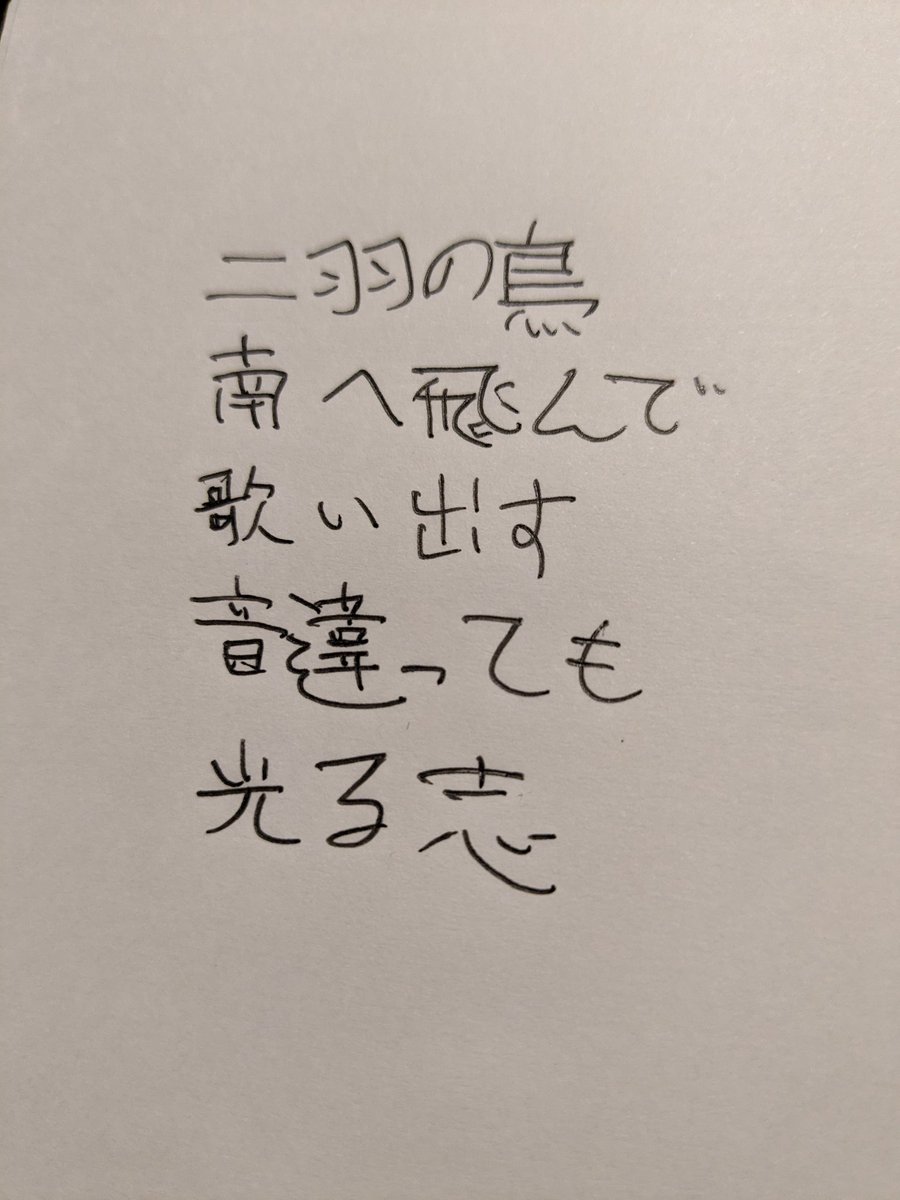 二羽の鳥
南へ飛んで
歌い出す
音違っても
光る志